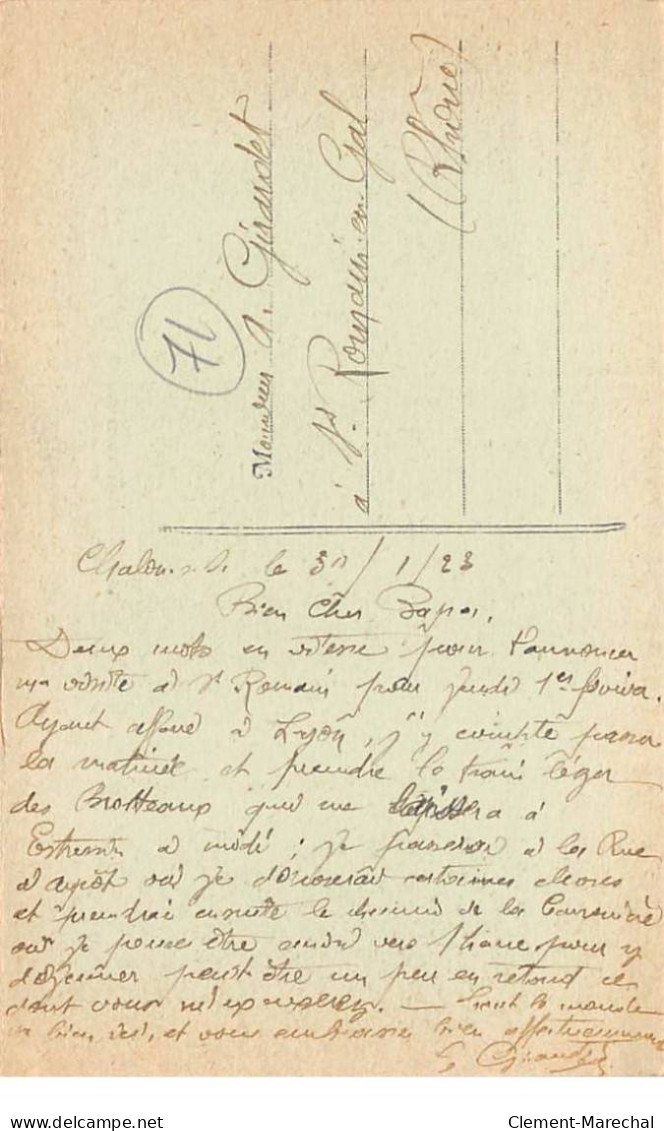 Monsieur A. Girardet
à St. Romain-en-Gal
(Rhône)
71
Chalon s. S. le 30/1/23
Bien Cher Papa,
Deux mots en vitesse pour t'annoncer
ma visite à St Romain pour jeudi 1er février.
Ayant affaire à Lyon, j'y compte passer
la matinée et prendre le train léger
des Brotteaux qui me laissera à
Estressin à midi ; je passerai à la Rue
d' où je donnerai certaines choses
et prendrai ensuite le chemin de la
où je pense être rendu vers 1 heure pour y
déjeuner peut être un peu en retard ce
dont vous m'excuserez. — Tout le monde
va bien ici, et vous embrasse bien affectueusement
G Girardet
www.delcampe.net
Clement-Marechal